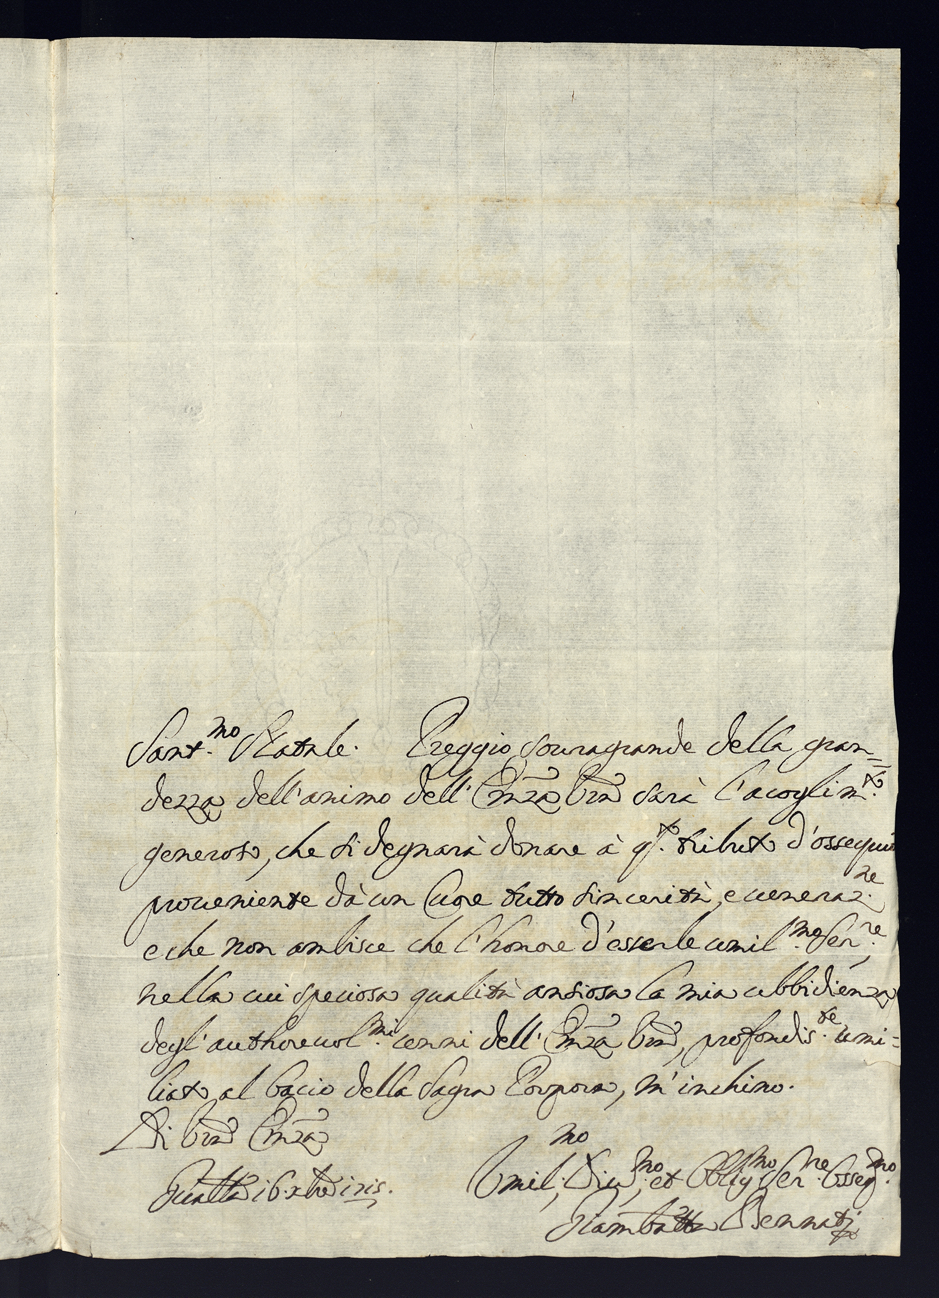 Sant.mo Natale. Preggio souragrande della gran=
dezza dell'animo dell'Emza Vra sarà l'acoglim.to
generoso, che si degnarà donare à q.to tributo d'ossequio
proueniente dà un Cuore tutto sincerità, e ueneraz.ne
e che non ambisce che l'honore d'esserle umil.mo Ser.re
nella cui speciosa qualità ansiosa la mia ubbidienza
degl'authoreuol.mi cenni dell'Emza Vra, profondis.te umi=
liato al bacio della Sagra Porpora, m'inchino.
Di Vra Emza
Guasta 16 xbre 1715.
Umil.mo Diu.mo et Obblig.mo Ser.re Osseq.mo
Giambatta Bennati